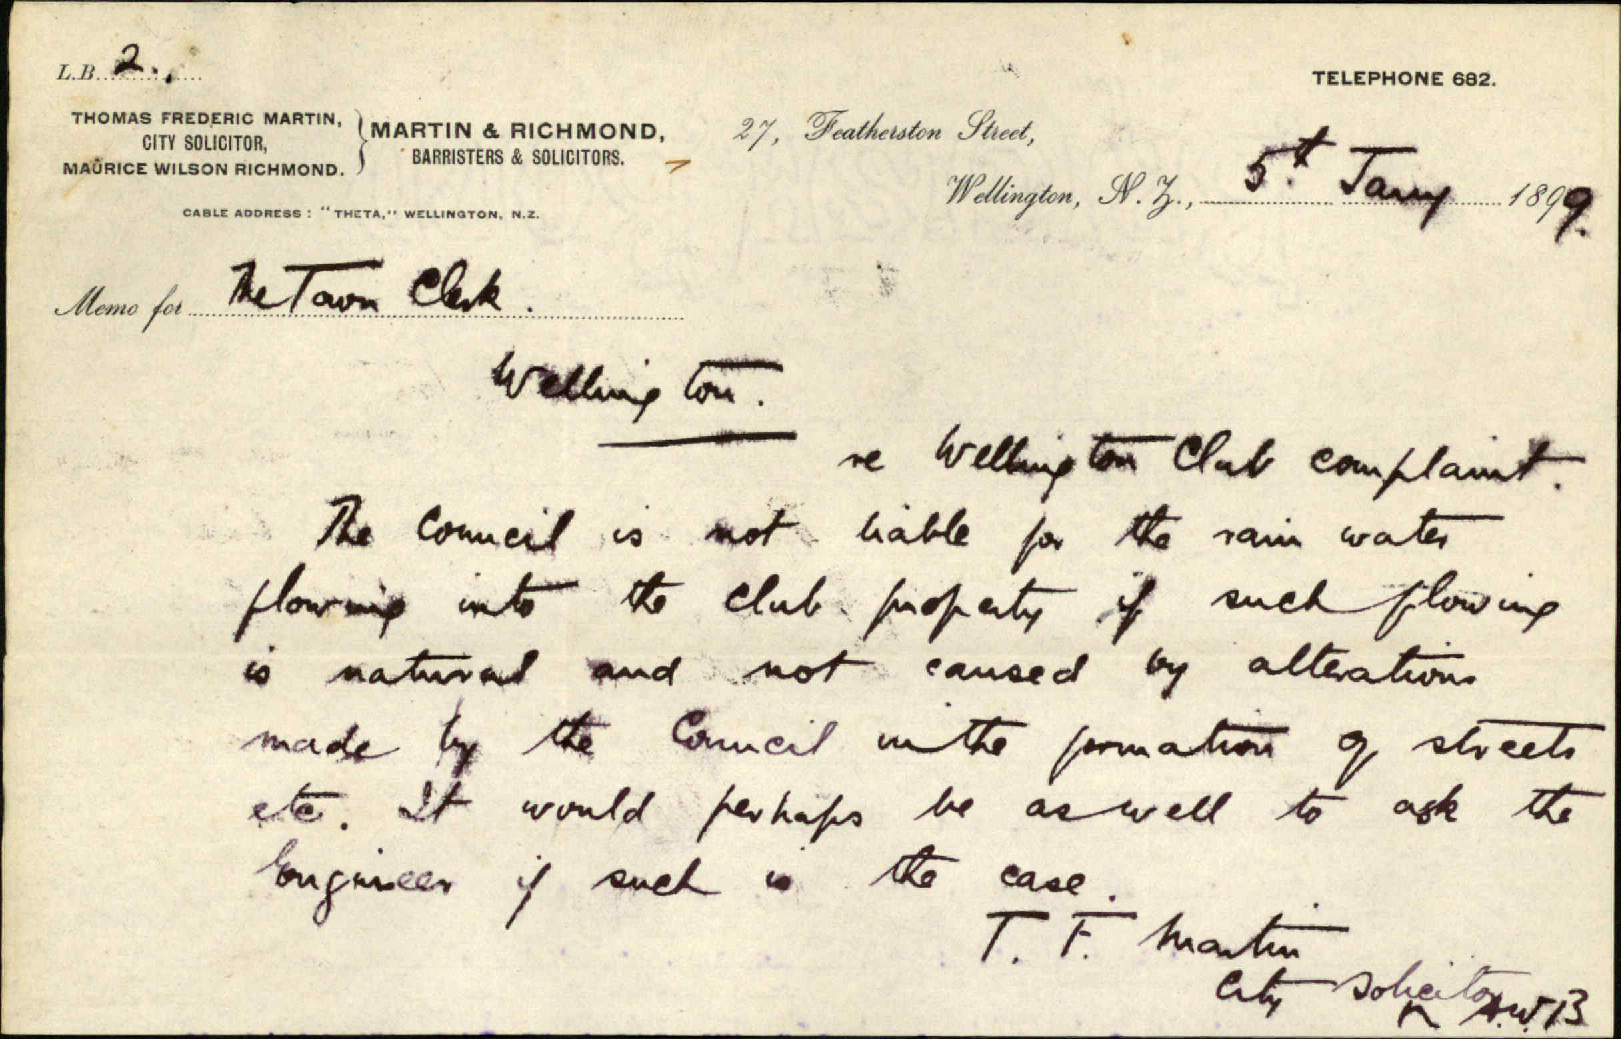 L.B. 2.
TELEPHONE 682.
THOMAS FREDERIC MARTIN,
CITY SOLICITOR,
MAURICE WILSON RICHMOND.
MARTIN & RICHMOND,
BARRISTERS & SOLICITORS.
27, Featherston Street,
Wellington, N.Z., 5th Jany 1899.
CABLE ADDRESS: "THETA," WELLINGTON, N.Z.
Memo for The Town Clerk.
Wellington.
re Wellington Club complaint.
The Council is not liable for the rain water
flowing into the Club property if such flowing
is natural and not caused by alterations
made by the Council in the formation of streets
etc. It would perhaps be as well to ask the
Engineer if such is the case.
T. F. Martin
City Solicitor
A.W.B